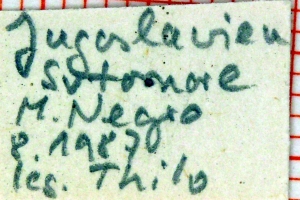 Jugoslavien
Sutomore
M. Negro
8. 1987
leg. Thilo